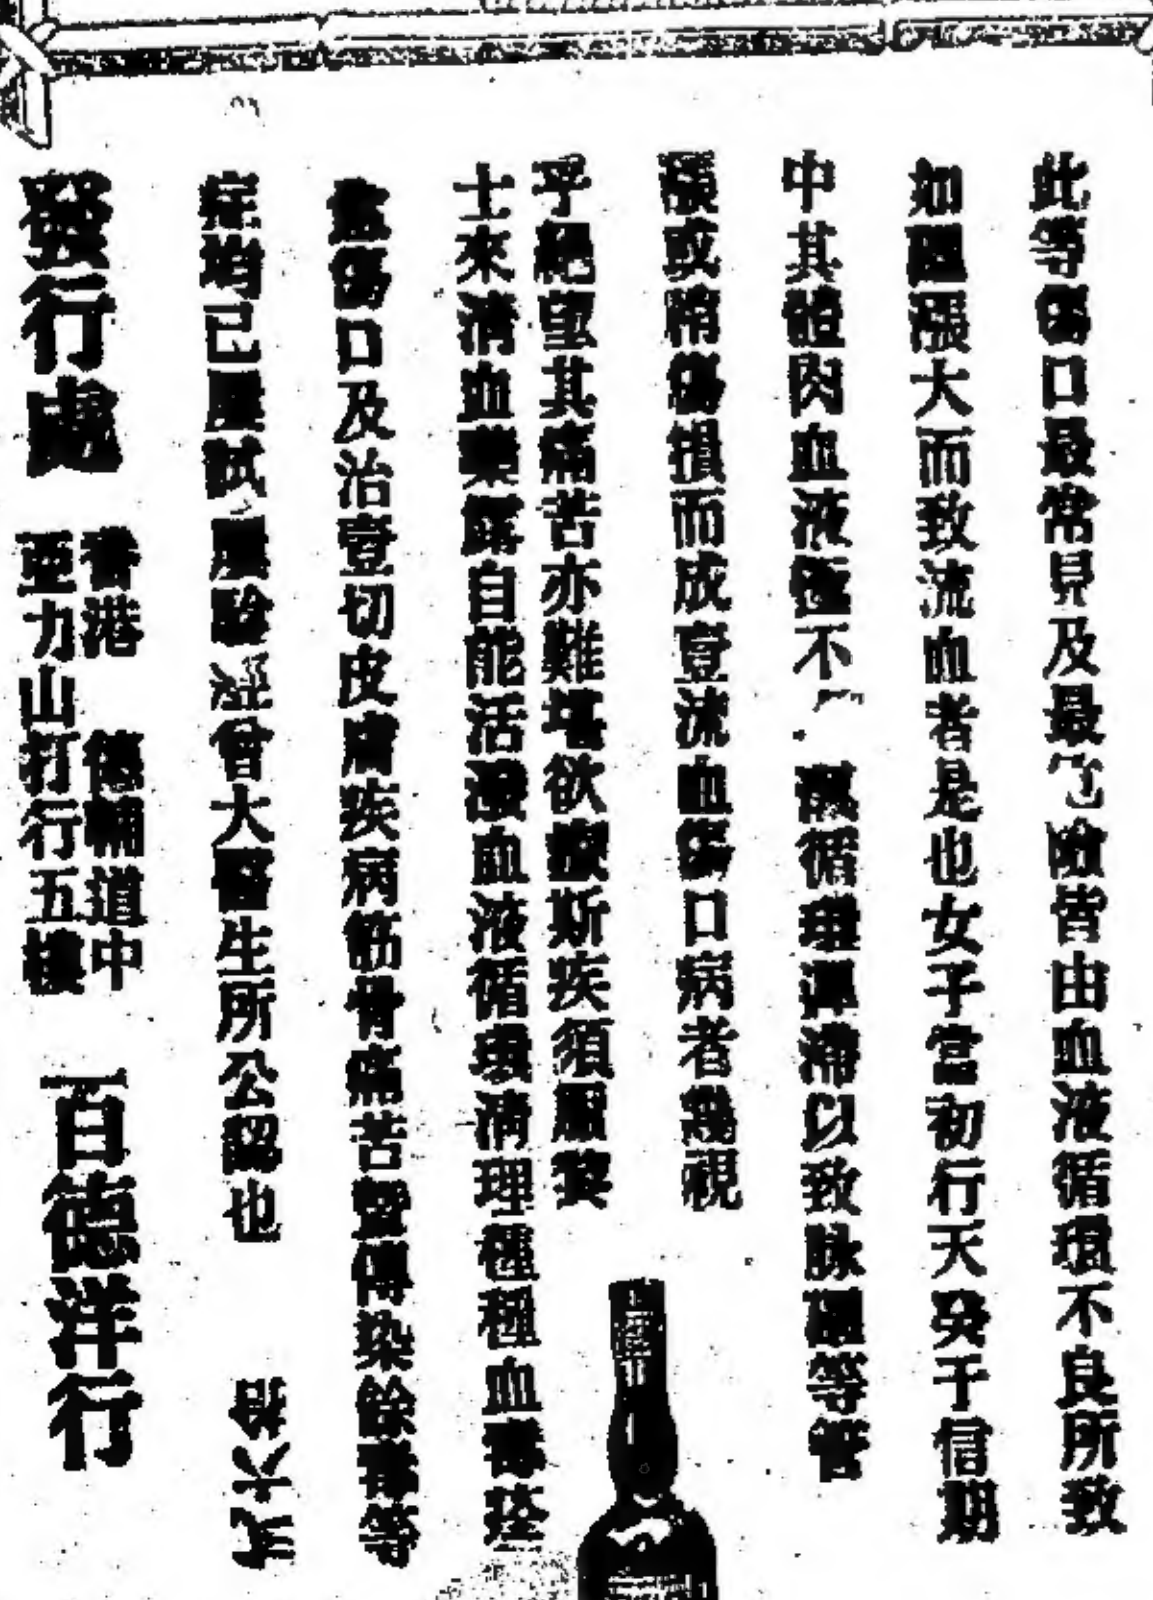 此等傷口最常見及最險皆由血液循環不良所致
如血漲大而致流血者是也女子當初行天癸于信期
中其體內血液極不循環運滯以致脉血等管
漲或暗傷損而成壹流血傷口病者幾視
乎絕望其痛苦亦難堪欲療斯疾須服黎
士來清血藥露自能活潑血液循環清理種種血毒瘡
盍傷口及治壹切皮膚疾病筋骨痛苦暨傳染餘毒等
症均已屢試屢驗曾大醫生所公認也
弍六拾
發行處
香港 德輔道中
亞力山打行五樓
百德洋行